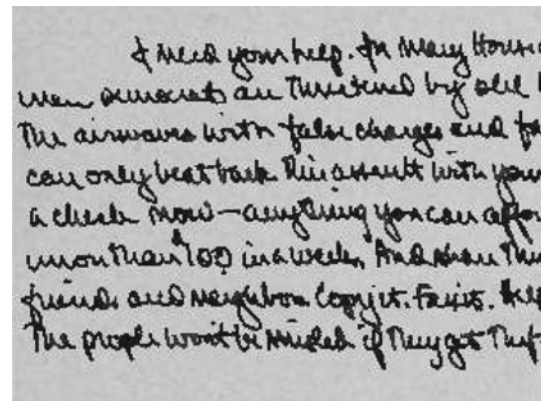 I need your help. In Many House
men democrats are threatened by
the airwaves with false charges and fa
can only beat back this assault with your
a check now—anything you can affor
more than $100 in a week. And share this
friends and neighbors. Copy it. Fax it. Help
The people won't be misled if they get the